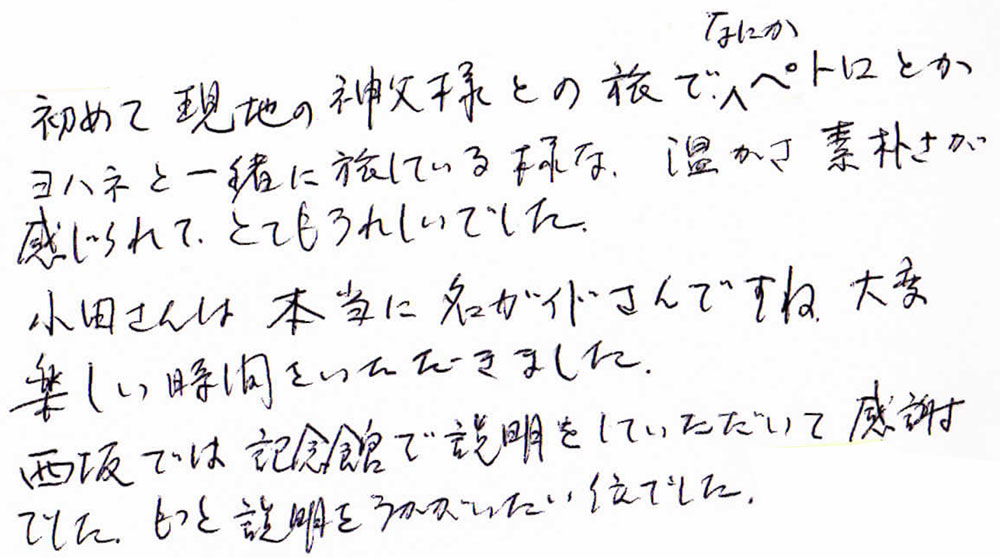 なにか
初めて現地の神父様との旅で、ペトロとか
ヨハネと一緒に旅している様な、温かさ素朴さが
感じられて、とてもうれしいでした。
小田さんは本当に名ガイドさんですね。大変
楽しい時間をいただきました。
西坂では記念館で説明をしていただいて感謝
でした。もっと説明をうかがいたい位でした。